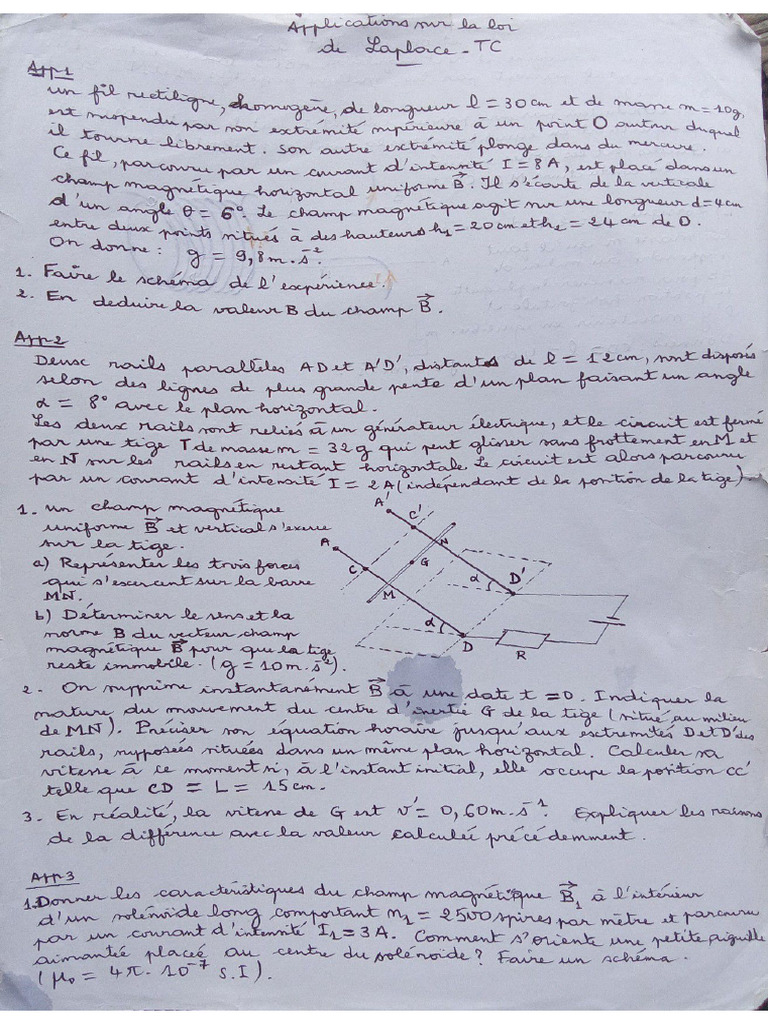 Applications sur la loi
de Laplace - TC
App 1
un fil rectiligne, homogène, de longueur l = 30 cm et de masse m = 10g,
est suspendu par son extrémité supérieure à un point O autour duquel
il tourne librement. Son autre extrémité plonge dans du mercure.
Ce fil, parcouru par un courant d'intensité I = 8A, est placé dans un
champ magnétique horizontal uniforme B⃗. Il s'écarte de la verticale
d'un angle θ = 6°. Le champ magnétique agit sur une longueur d = 4cm
entre deux points situés à des hauteurs h₁ = 20cm et h₂ = 24 cm de O.
On donne : g = 9,8 m.s⁻².
1. Faire le schéma de l'expérience.
2. En deduire la valeur B du champ B⃗.
App 2
Deux rails parallèles AD et A'D', distants de l = 12cm, sont disposés
selon des lignes de plus grande pente d'un plan faisant un angle
α = 8° avec le plan horizontal.
Les deux rails sont reliés à un générateur électrique, et le circuit est fermé
par une tige T de masse m = 32g qui peut glisser sans frottement en M et
en N sur les rails en restant horizontale. Le circuit est alors parcouru
par un courant d'intensité I = 2A (indépendant de la position de la tige)
1. un champ magnétique
uniforme B⃗ et vertical s'exerce
sur la tige.
a) Représenter les trois forces
qui s'exercent sur la barre
MN.
b) Déterminer le sens et la
norme B du vecteur champ
magnétique B⃗ pour que la tige
reste immobile. (g = 10m.s⁻²).
A'
C'
A
N
C
G
D'
M
α
α
D
R
2. On supprime instantanément B⃗ à une date t = 0. Indiquer la
nature du mouvement du centre d'inertie G de la tige (situé au milieu
de MN). Préciser son équation horaire jusqu'aux extremités D et D' des
rails, supposées situées dans un même plan horizontal. Calculer sa
vitesse à ce moment si, à l'instant initial, elle occupe la position CC'
telle que CD = L = 15cm.
3. En réalité, la vitesse de G est v' = 0,60m.s⁻¹. Expliquer les raisons
de la différence avec la valeur calculée précédemment.
App 3
1. Donner les caractéristiques du champ magnétique B⃗₁ à l'intérieur
d'un solénoïde long comportant n₁ = 2500 spires par mètre et parcouru
par un courant d'intensité I₁ = 3A. Comment s'oriente une petite aiguille
aimantée placée au centre du solénoïde ? Faire un schéma.
(μ₀ = 4π.10⁻⁷ S.I).